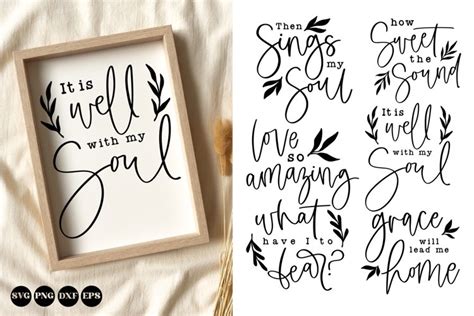 It is
well
with my
Soul
SVG PNG DXF EPS
Then
Sings
my
Soul
how
Sweet
the
Sound
love
so
amazing
It is
well
with my
Soul
what
have I to
fear?
grace
will
lead me
home